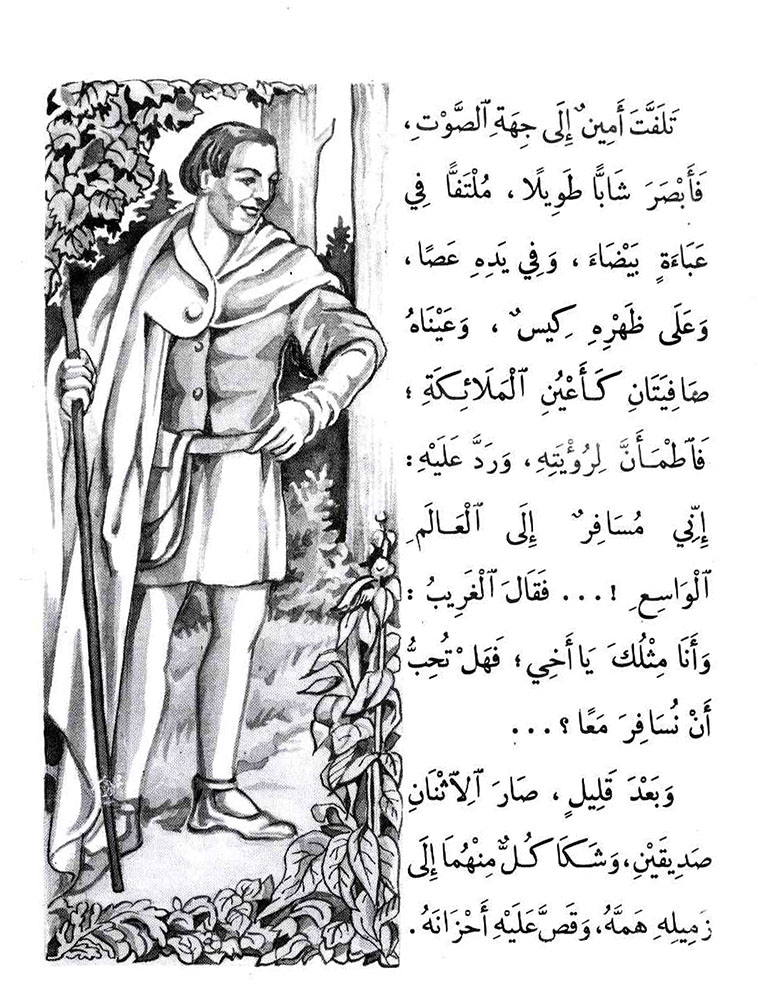 تَلَفَّتَ أَمِينٌ إِلَى جِهَةِ ٱلصَّوْتِ،
فَأَبْصَرَ شَابًّا طَوِيلًا، مُلْتَفًّا فِي
عَبَاءَةٍ بَيْضَاءَ، وَفِي يَدِهِ عَصًا،
وَعَلَى ظَهْرِهِ كِيسٌ، وَعَيْنَاهُ
صَافِيَتَانِ كَأَعْيُنِ ٱلْمَلَائِكَةِ؛
فَٱطْمَأَنَّ لِرُؤْيَتِهِ، وَرَدَّ عَلَيْهِ:
إِنِّي مُسَافِرٌ إِلَى ٱلْعَالَمِ
ٱلْوَاسِعِ !... فَقَالَ ٱلْغَرِيبُ:
وَأَنَا مِثْلُكَ يَا أَخِي؛ فَهَلْ تُحِبُّ
أَنْ نُسَافِرَ مَعًا؟...
وَبَعْدَ قَلِيلٍ، صَارَ ٱلِٱثْنَانِ
صَدِيقَيْنِ، وَشَكَا كُلٌّ مِنْهُمَا إِلَى
زَمِيلِهِ هَمَّهُ، وَقَصَّ عَلَيْهِ أَحْزَانَهُ.